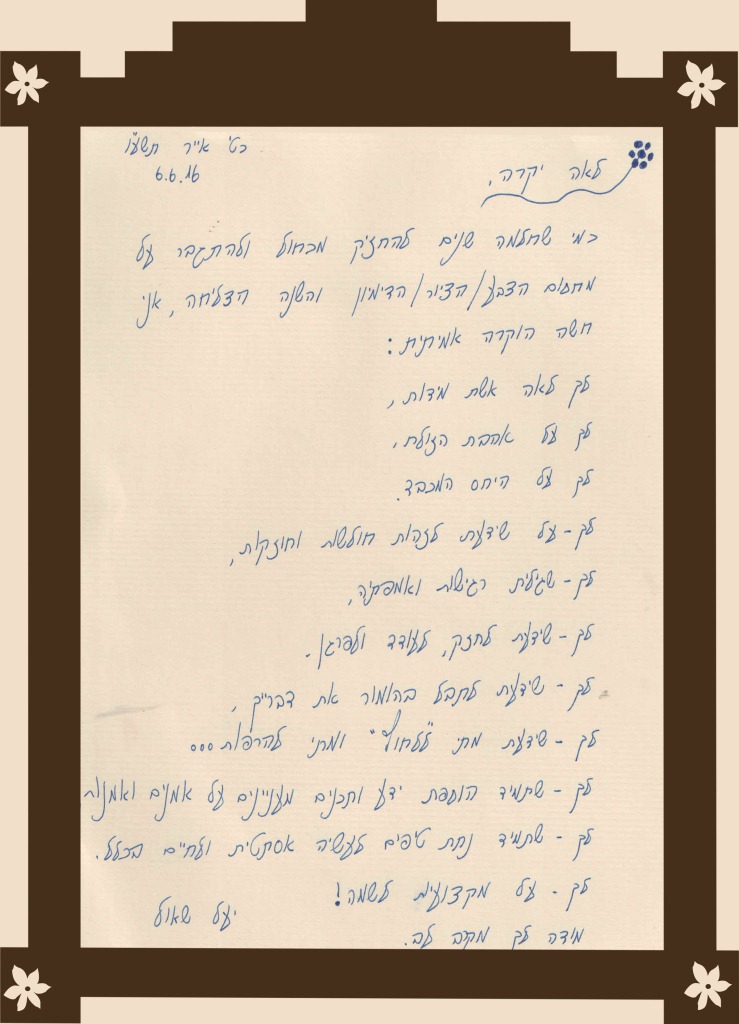 כט' אייר תשע"ו
6.6.16
לאה יקרה,
כמי שחלמה שנים להחזיק מכחול ולהתגבר על
מחסום הצבע/הציור/הדימיון והשנה הצליחה, אני
חשה הוקרה אמיתית:
לך לאה אשת מידות,
לך על אהבת הזולת,
לך על היחס המכבד.
לך - על שידעת לזהות חולשות וחוזקות,
לך - שגילית רגישות ואמפתיה,
לך - שידעת לחזק, לעודד ולפרגן.
לך - שידעת לתבל בהומור את דברייך,
לך - שידעת מתי "ללחוץ" ומתי להרפות...
לך - שתמיד הוספת ידע ותכנים מעניינים על אמנים ואמנות
לך - שתמיד נתת טיפים לעשיה אסתטית ולחיים בכלל.
לך - על מקצועיות לשמה!
מודה לך מקרב לב.
יעל שאול